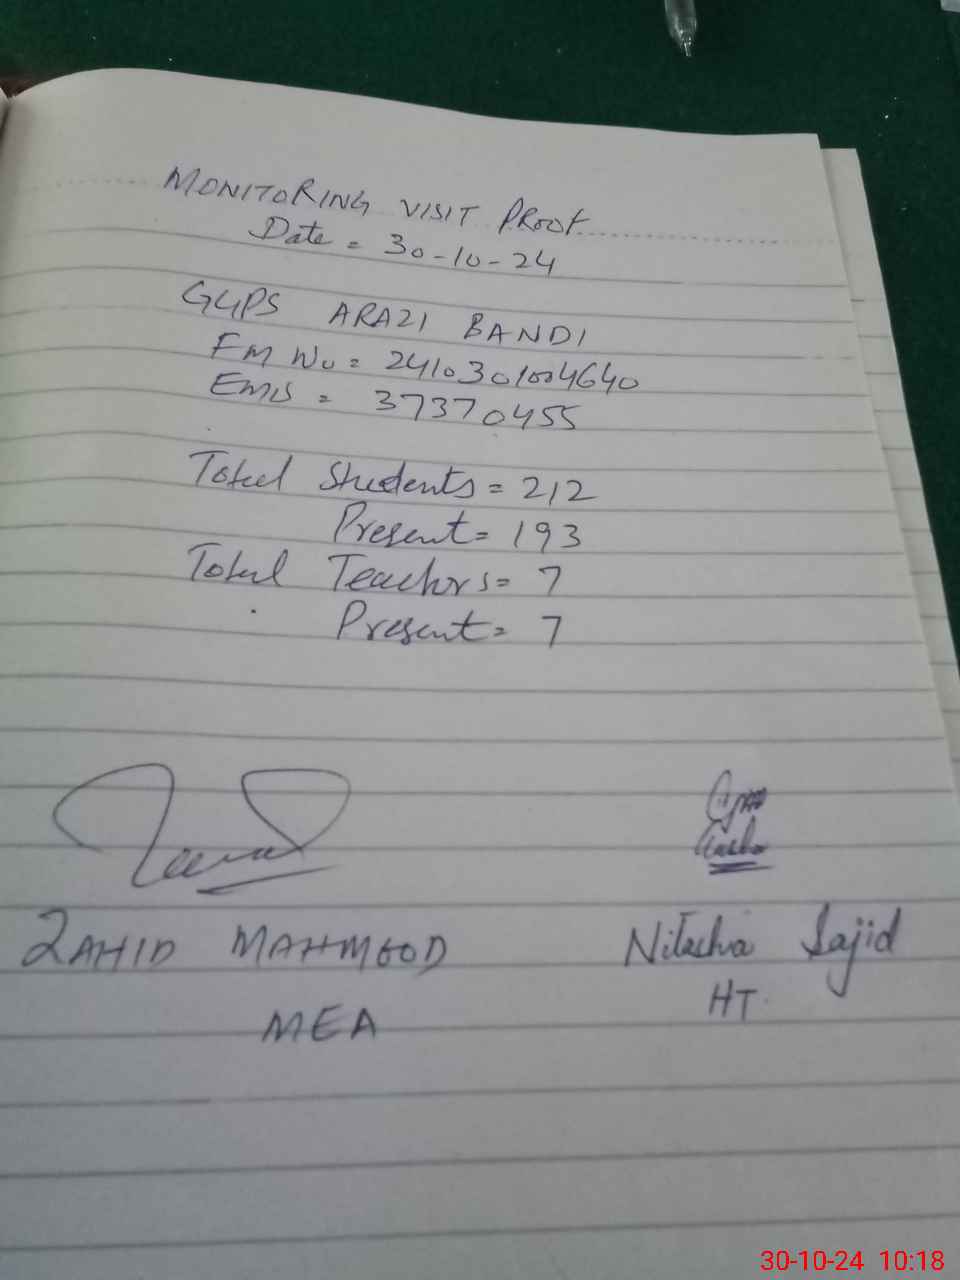 MONITORING VISIT PROOF
Date = 30-10-24
GGPS ARAZI BANDI
FM No = 2410301004640
EMIS = 37370455
Total Students = 212
Present = 193
Total Teachers = 7
Present = 7
ZAHID MAHMOOD
Nitasha Sajid
MEA
HT.
30-10-24 10:18